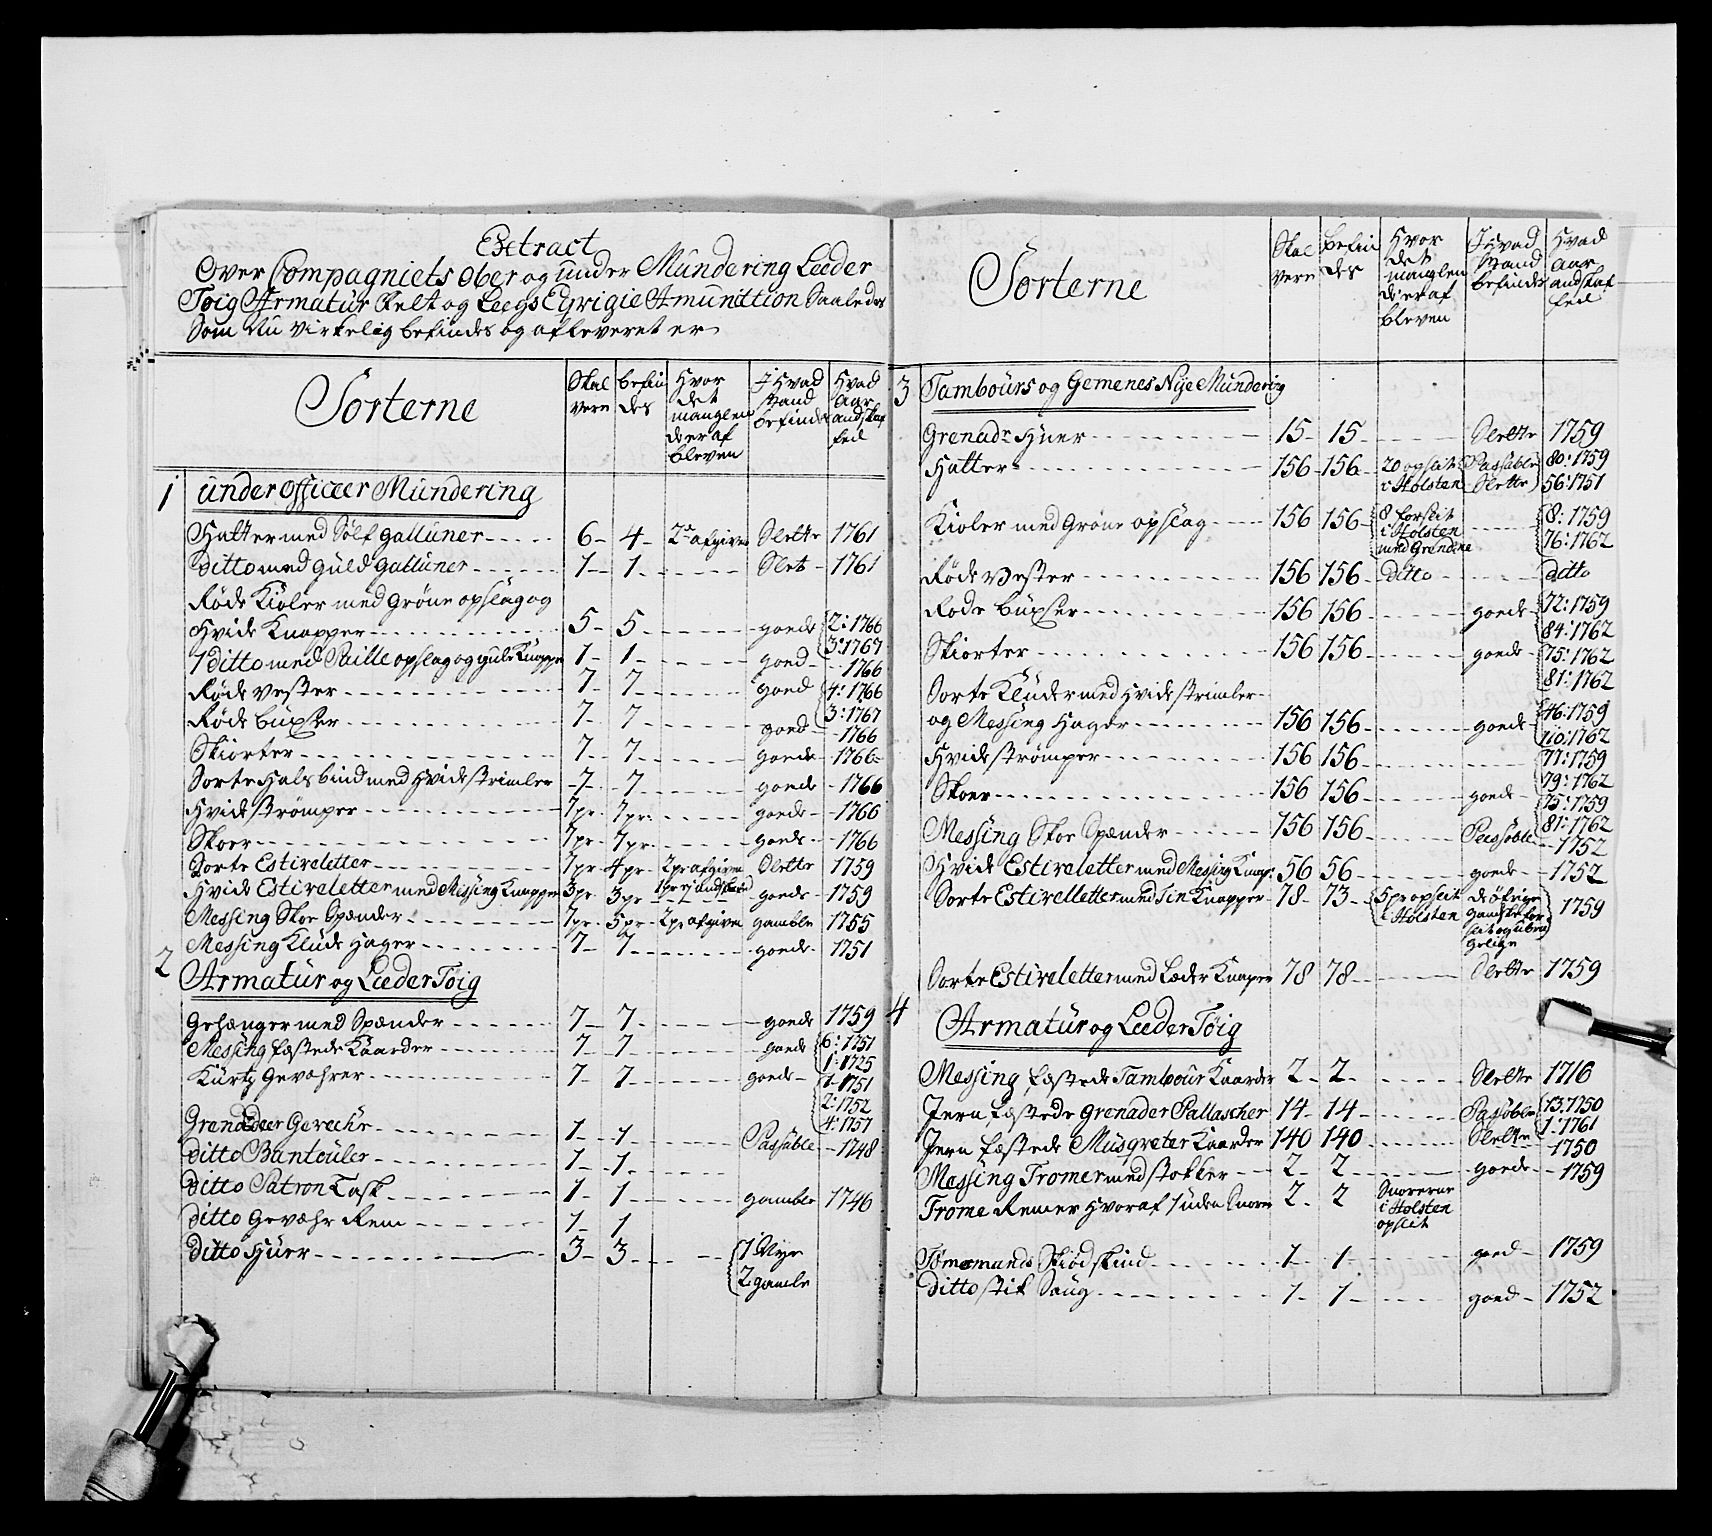 Extract
Over Compagniets Ober og under Mundering Leeder
Töig Armatur Felt og Leegs Eqvigie Amunittion Saaledes
Som Nu virkelig befindes og afleveret er
Sorterne
Skal være
befindes
Hvor det manglende er af bleven
I Hvad Stand befindes
Hvad Aar andskaffed
1 under officeer Mundering
Hatter med Sölf galluner 6 4 2de afgiven Slette 1761
Ditto med Guld Galluner 1 1 Slet 1761
Röde Kioler med Gröne opslag og
Hvide Knapper 5 5 goede 2: 1766
3: 1767
1 ditto med Paille opslag og gule Knapper 1 1 goed 1766
Röde vester 7 7 goed 4: 1766
3: 1767
Röde buxser 7 7 goed 1766
Skiorter 7 7 goede 1766
Sorte Halsbind med Hvide strimler 7 7 goede 1766
Hvide strömper 7 pr 7 pr: goede 1766
Skoer 7 pr 7 pr goede 1766
Sorte Estiveletter 7 pr 4 pr 2 pr afgiven Slette 1759
1 pr ej andskaffed
Hvide Estiveletter med Messing Knapper 3 pr 3 pr goede 1759
Messing Skoe Spænder 7 pr 5 pr 2 pr afgiven gamble 1755
Messing Klude Hager 7 7 goede 1751
2 Armatur og Leeder Töig
Gehænger med Spænder 7 7 goede 1759
Messing fæstede Kaarder 7 7 goede 6: 1751
1: 1725
Kurtz Gevæhrer 7 7 goede 1 1751
2: 1752
4: 1757
Grenadeer Geveehr 1 1 Passable 1748
Ditto Bantouler 1 1
Ditto Patron Task 1 1 gamble 1746
Ditto Gevæhr Rem 1 1
Ditto Huer 3 3 1 Nye
2 gamle
Sorterne
Skal være
befindes
Hvor det manglende er af bleven
I Hvad Stand befindes
Hvad Aar andskaffed
3 Tambours og Gemenes Nye Mundering
Grenadr Huer 15 15 Slette 1759
Hatter 156 156 20 opslit Passable 80: 1759
i Holsten Slette 56: 1751
Kioler med Gröne opslag 156 156 8 forslit 8: 1759
i Holsten 76: 1762
med Grændene
Röde Vester 156 156 ditto ditto
Röde buxser 156 156 goede 72: 1759
84: 1762
Skiorter 156 156 goede 75: 1762
81: 1762
Sorte Kluder med Hvide strimler
og Messing Hager 156 156 goede 46: 1759
110: 1762
Hvide strömper 156 156 77: 1759
79: 1762
Skoer 156 156 goede 75: 1759
81: 1762
Messing Skoe Spænder 156 156 Passable 1752
Hvide Estiveletter med Messing Knap: 56 56 goede 1752
Sorte Estivelletter med Tin Knapper 78 73 5 pr opslit de öfrige 1759
i Holsten ganske for
slit og ubru
gelige
Sorte Estiveletter med Læder Knaper 78 78 Slette 1759
4 Armatur og Leeder Töig
Messing fæstede Tambour Kaarder 2 2 Slette 1716
Jern fæstede Grenader Pallascher 14 14 Pasable 13: 1750
1: 1761
Jern fæstede Musqveter Kaarder 140 140 Slette 1750
Messing Tromer med stokker 2 2 goede 1759
Trome Remer Hvoraf 1 uden Snorer 2 2 Snorerne
i Holsten
opslit
Tömemands Skiödskind 1 1 goed 1759
Ditto stik Saug 1 1 goed 1752